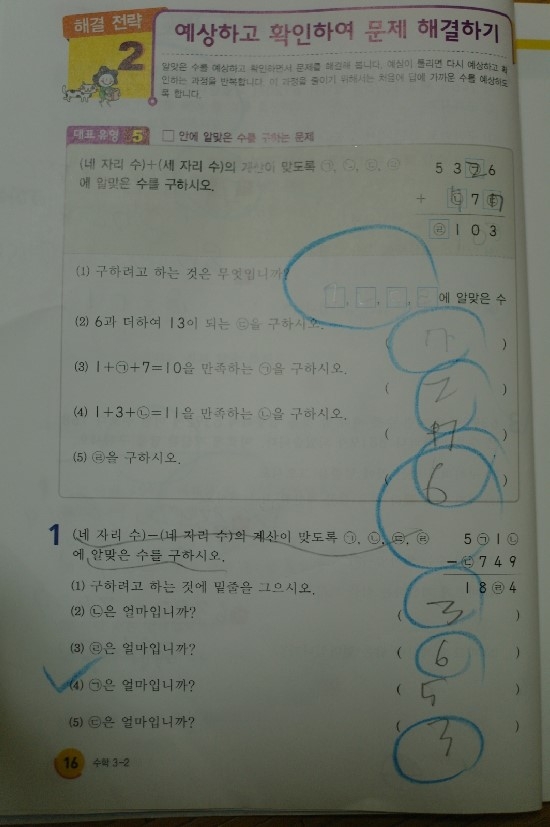 해결 전략
2
예상하고 확인하여 문제 해결하기
알맞은 수를 예상하고 확인하면서 문제를 해결해 봅니다. 예상이 틀리면 다시 예상하고 확
인하는 과정을 반복합니다. 이 과정을 줄이기 위해서는 처음에 답에 가까운 수를 예상하도
록 합니다.
대표 유형 5 □ 안에 알맞은 수를 구하는 문제
(네 자리 수)+(세 자리 수)의 계산이 맞도록 ㉠, ㉡, ㉢, ㉣
에 알맞은 수를 구하시오.
5 3 2 6
+ ㉡ 7 ㉢
㉣ 1 0 3
(1) 구하려고 하는 것은 무엇입니까?
㉠, ㉡, ㉢, ㉣에 알맞은 수
(2) 6과 더하여 13이 되는 ㉢을 구하시오.
( 7 )
(3) 1+㉠+7=10을 만족하는 ㉠을 구하시오.
( 2 )
(4) 1+3+㉡=11을 만족하는 ㉡을 구하시오.
( 7 )
(5) ㉣을 구하시오.
( 6 )
1 (네 자리 수)-(네 자리 수)의 계산이 맞도록 ㉠, ㉡, ㉢, ㉣
에 알맞은 수를 구하시오.
5 ㉠ 1 ㉡
- ㉢ 7 4 9
1 8 ㉣ 4
(1) 구하려고 하는 것에 밑줄을 그으시오.
(2) ㉡은 얼마입니까? ( 3 )
(3) ㉣은 얼마입니까? ( 6 )
(4) ㉠은 얼마입니까? ( 5 )
(5) ㉢은 얼마입니까? ( 3 )
16 수학 3-2